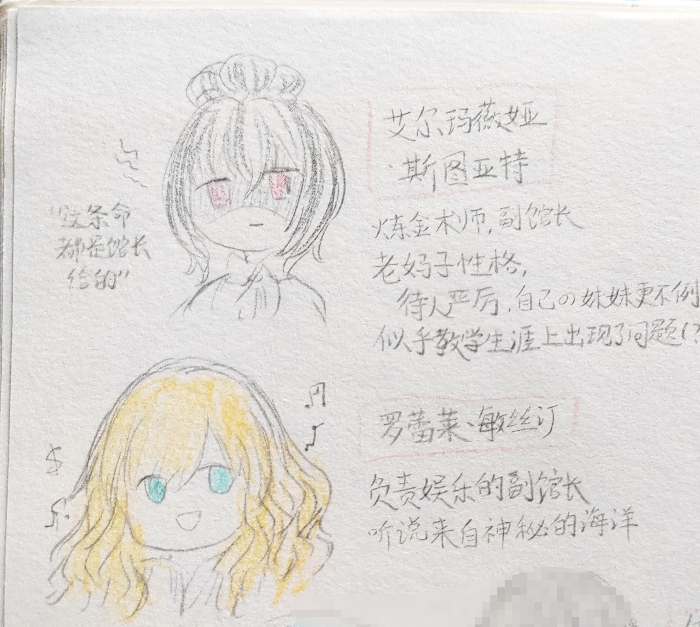 艾尔玛薇娅
·斯图亚特
"这条命
都是馆长
给的"
炼金术师,副馆长
老妈子性格,
待人严厉,自己の妹妹更不例
似乎教学生涯上出现了问题(?
罗蕾莱·敏丝汀
负责娱乐的副馆长
听说来自神秘的海洋